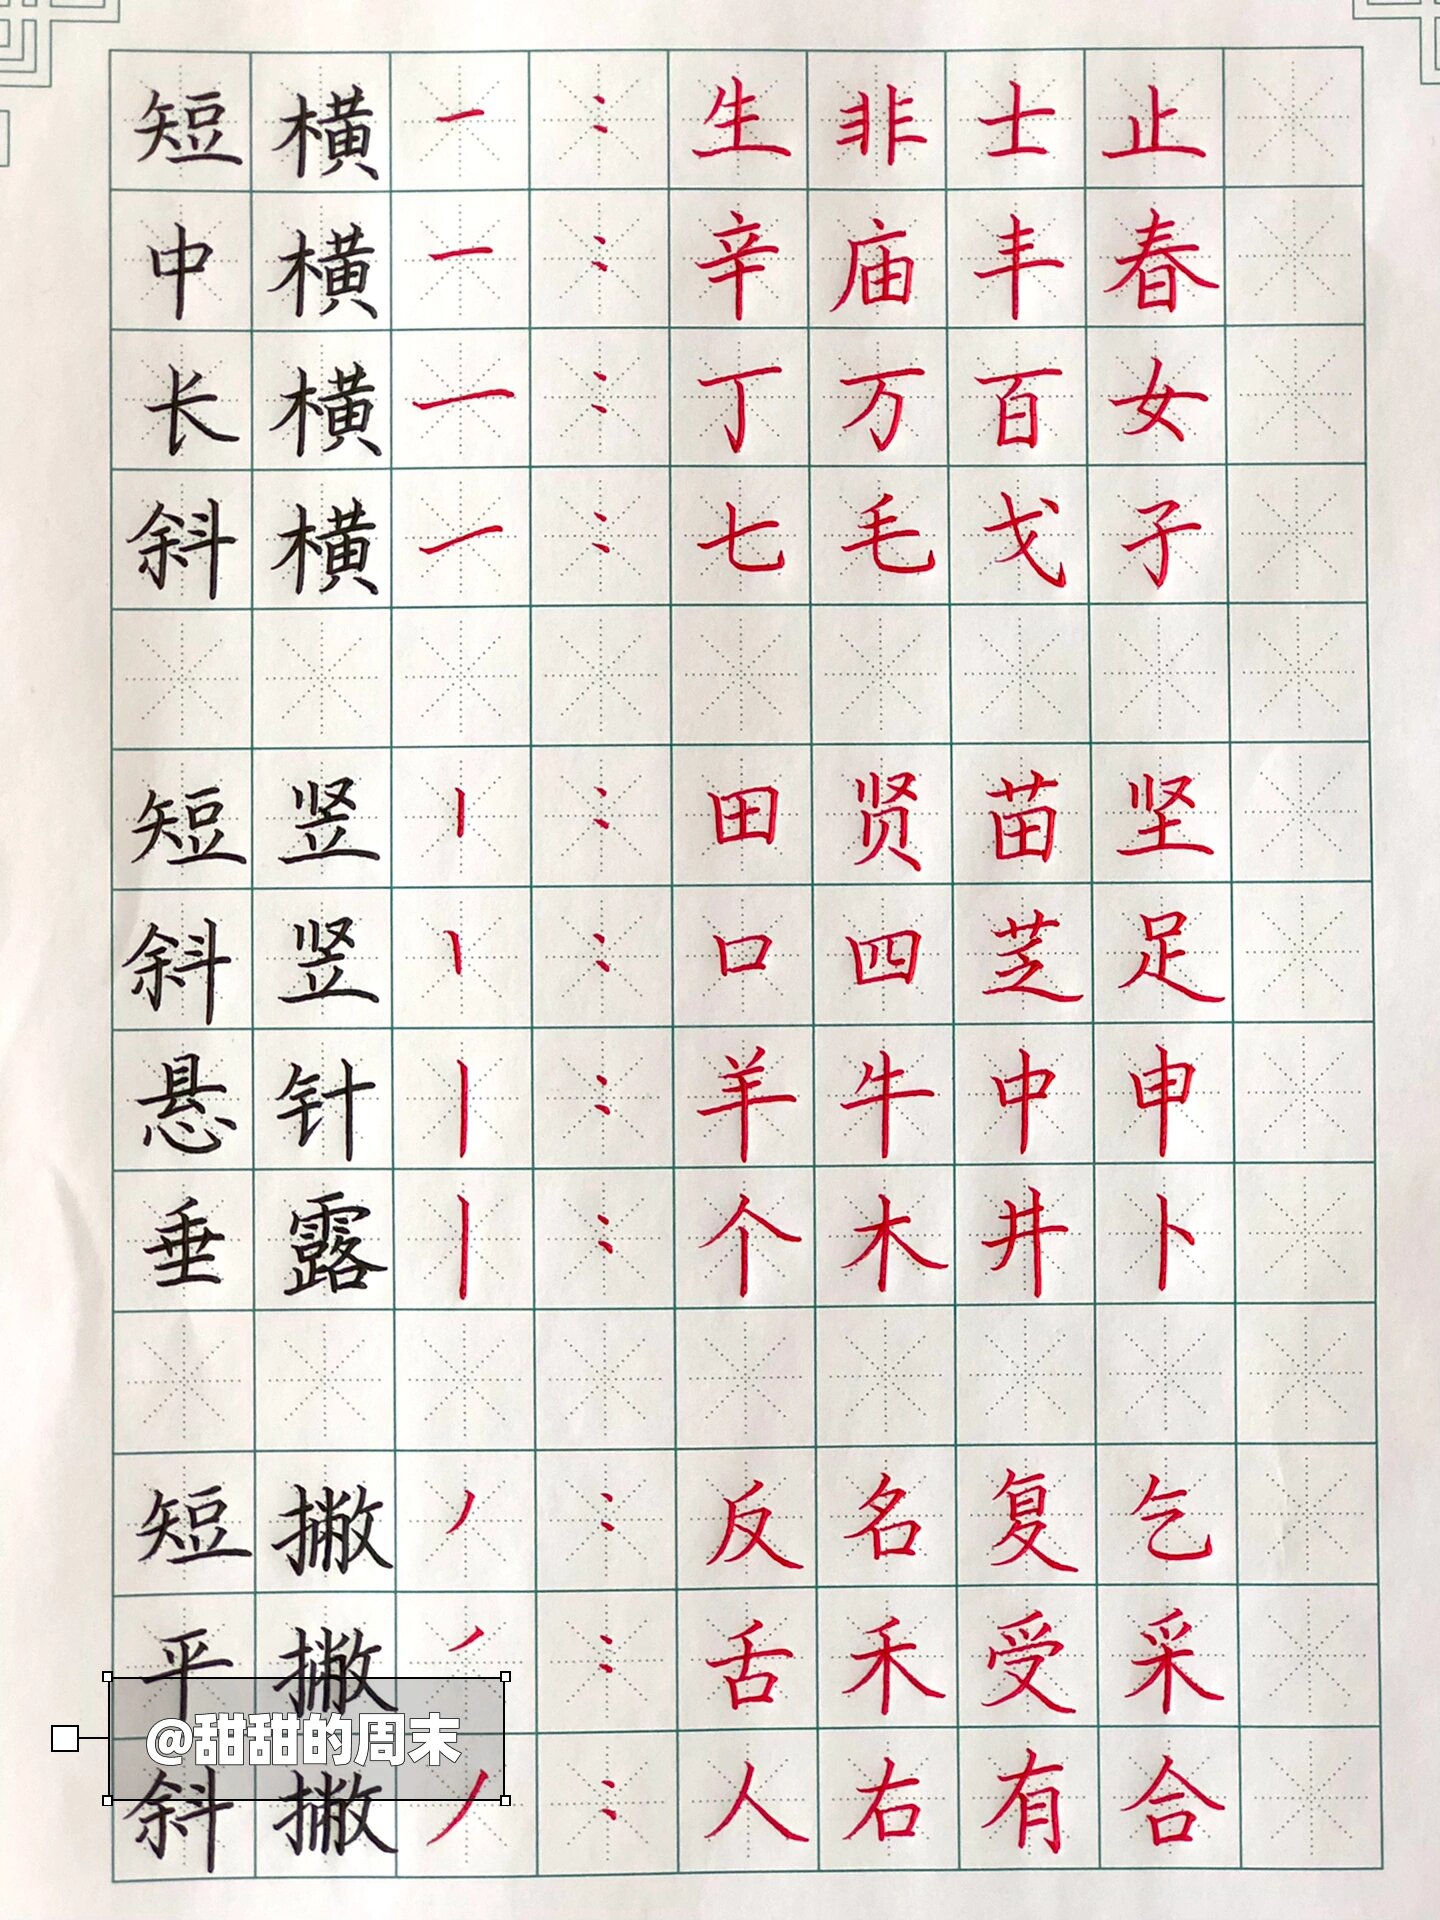 短横一：生非士止
中横一：辛庙丰春
长横一：丁万百女
斜横一：七毛戈子
短竖丨：田贤苗坚
斜竖丨：口四芝足
悬针丨：羊牛中申
垂露丨：个木井卜
短撇丿：反名复乞
平撇丿：舌禾受采
@甜甜的周末
斜撇丿：人右有合